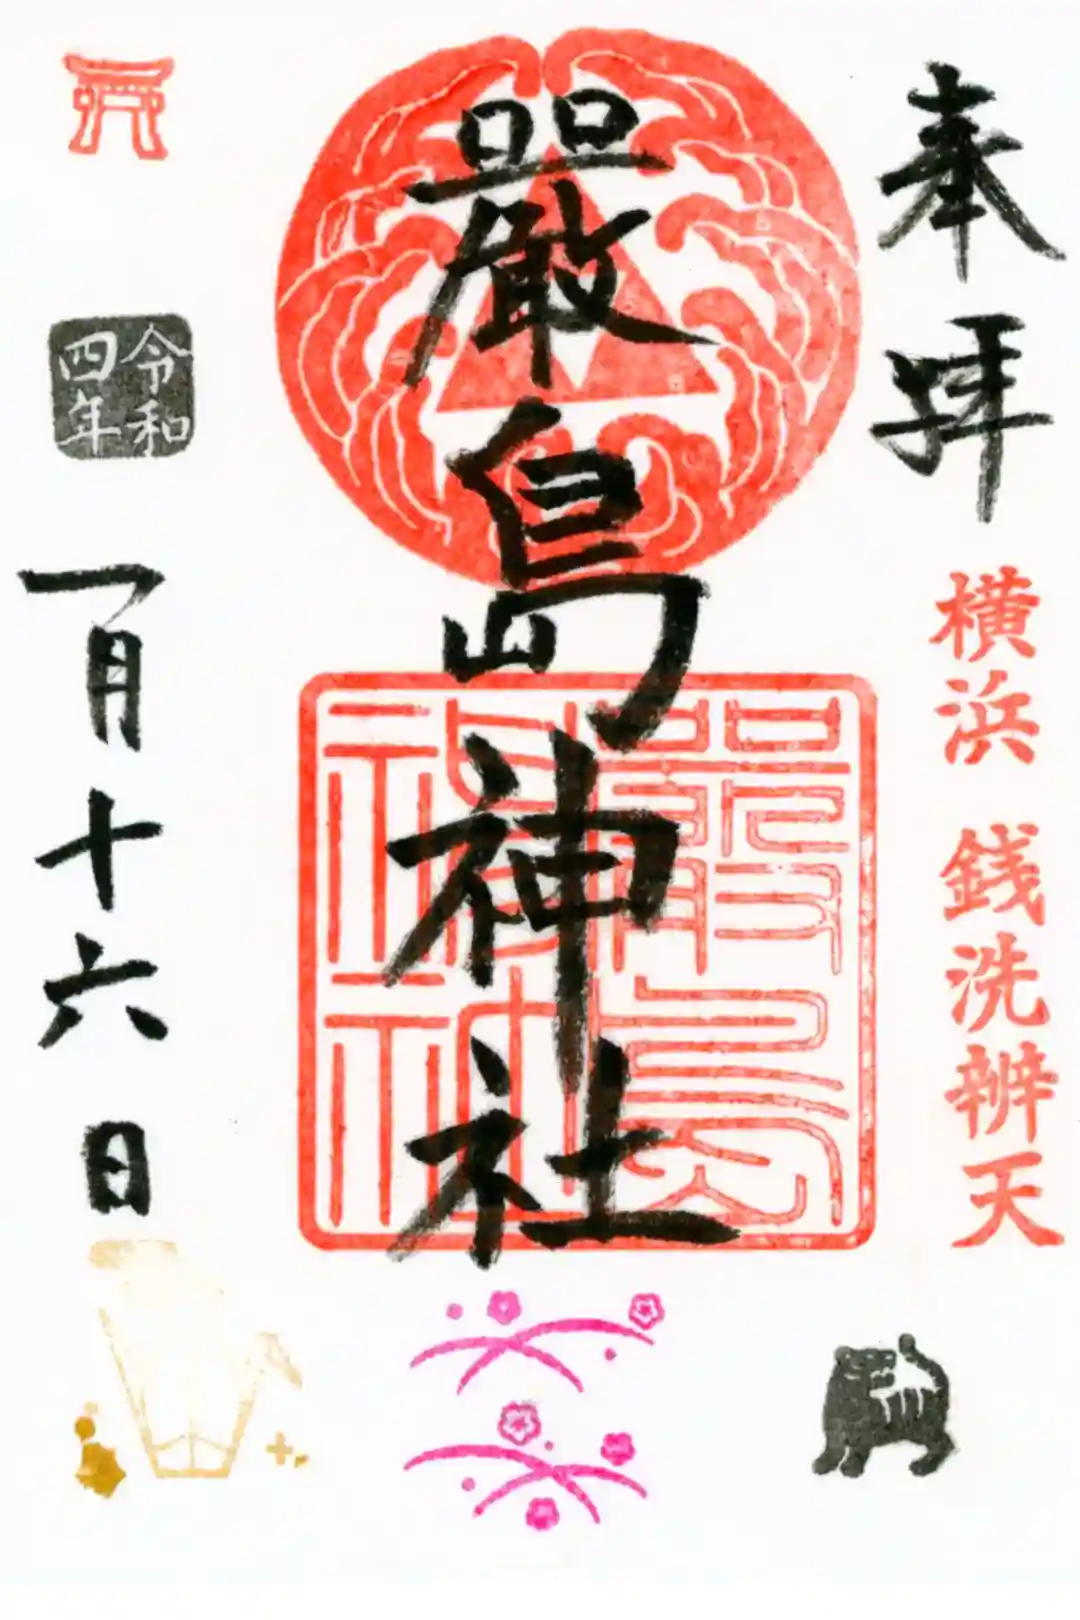 奉拝
横浜 銭洗辨天
嚴島神社
嚴島
神社
令和
四年
一月十六日